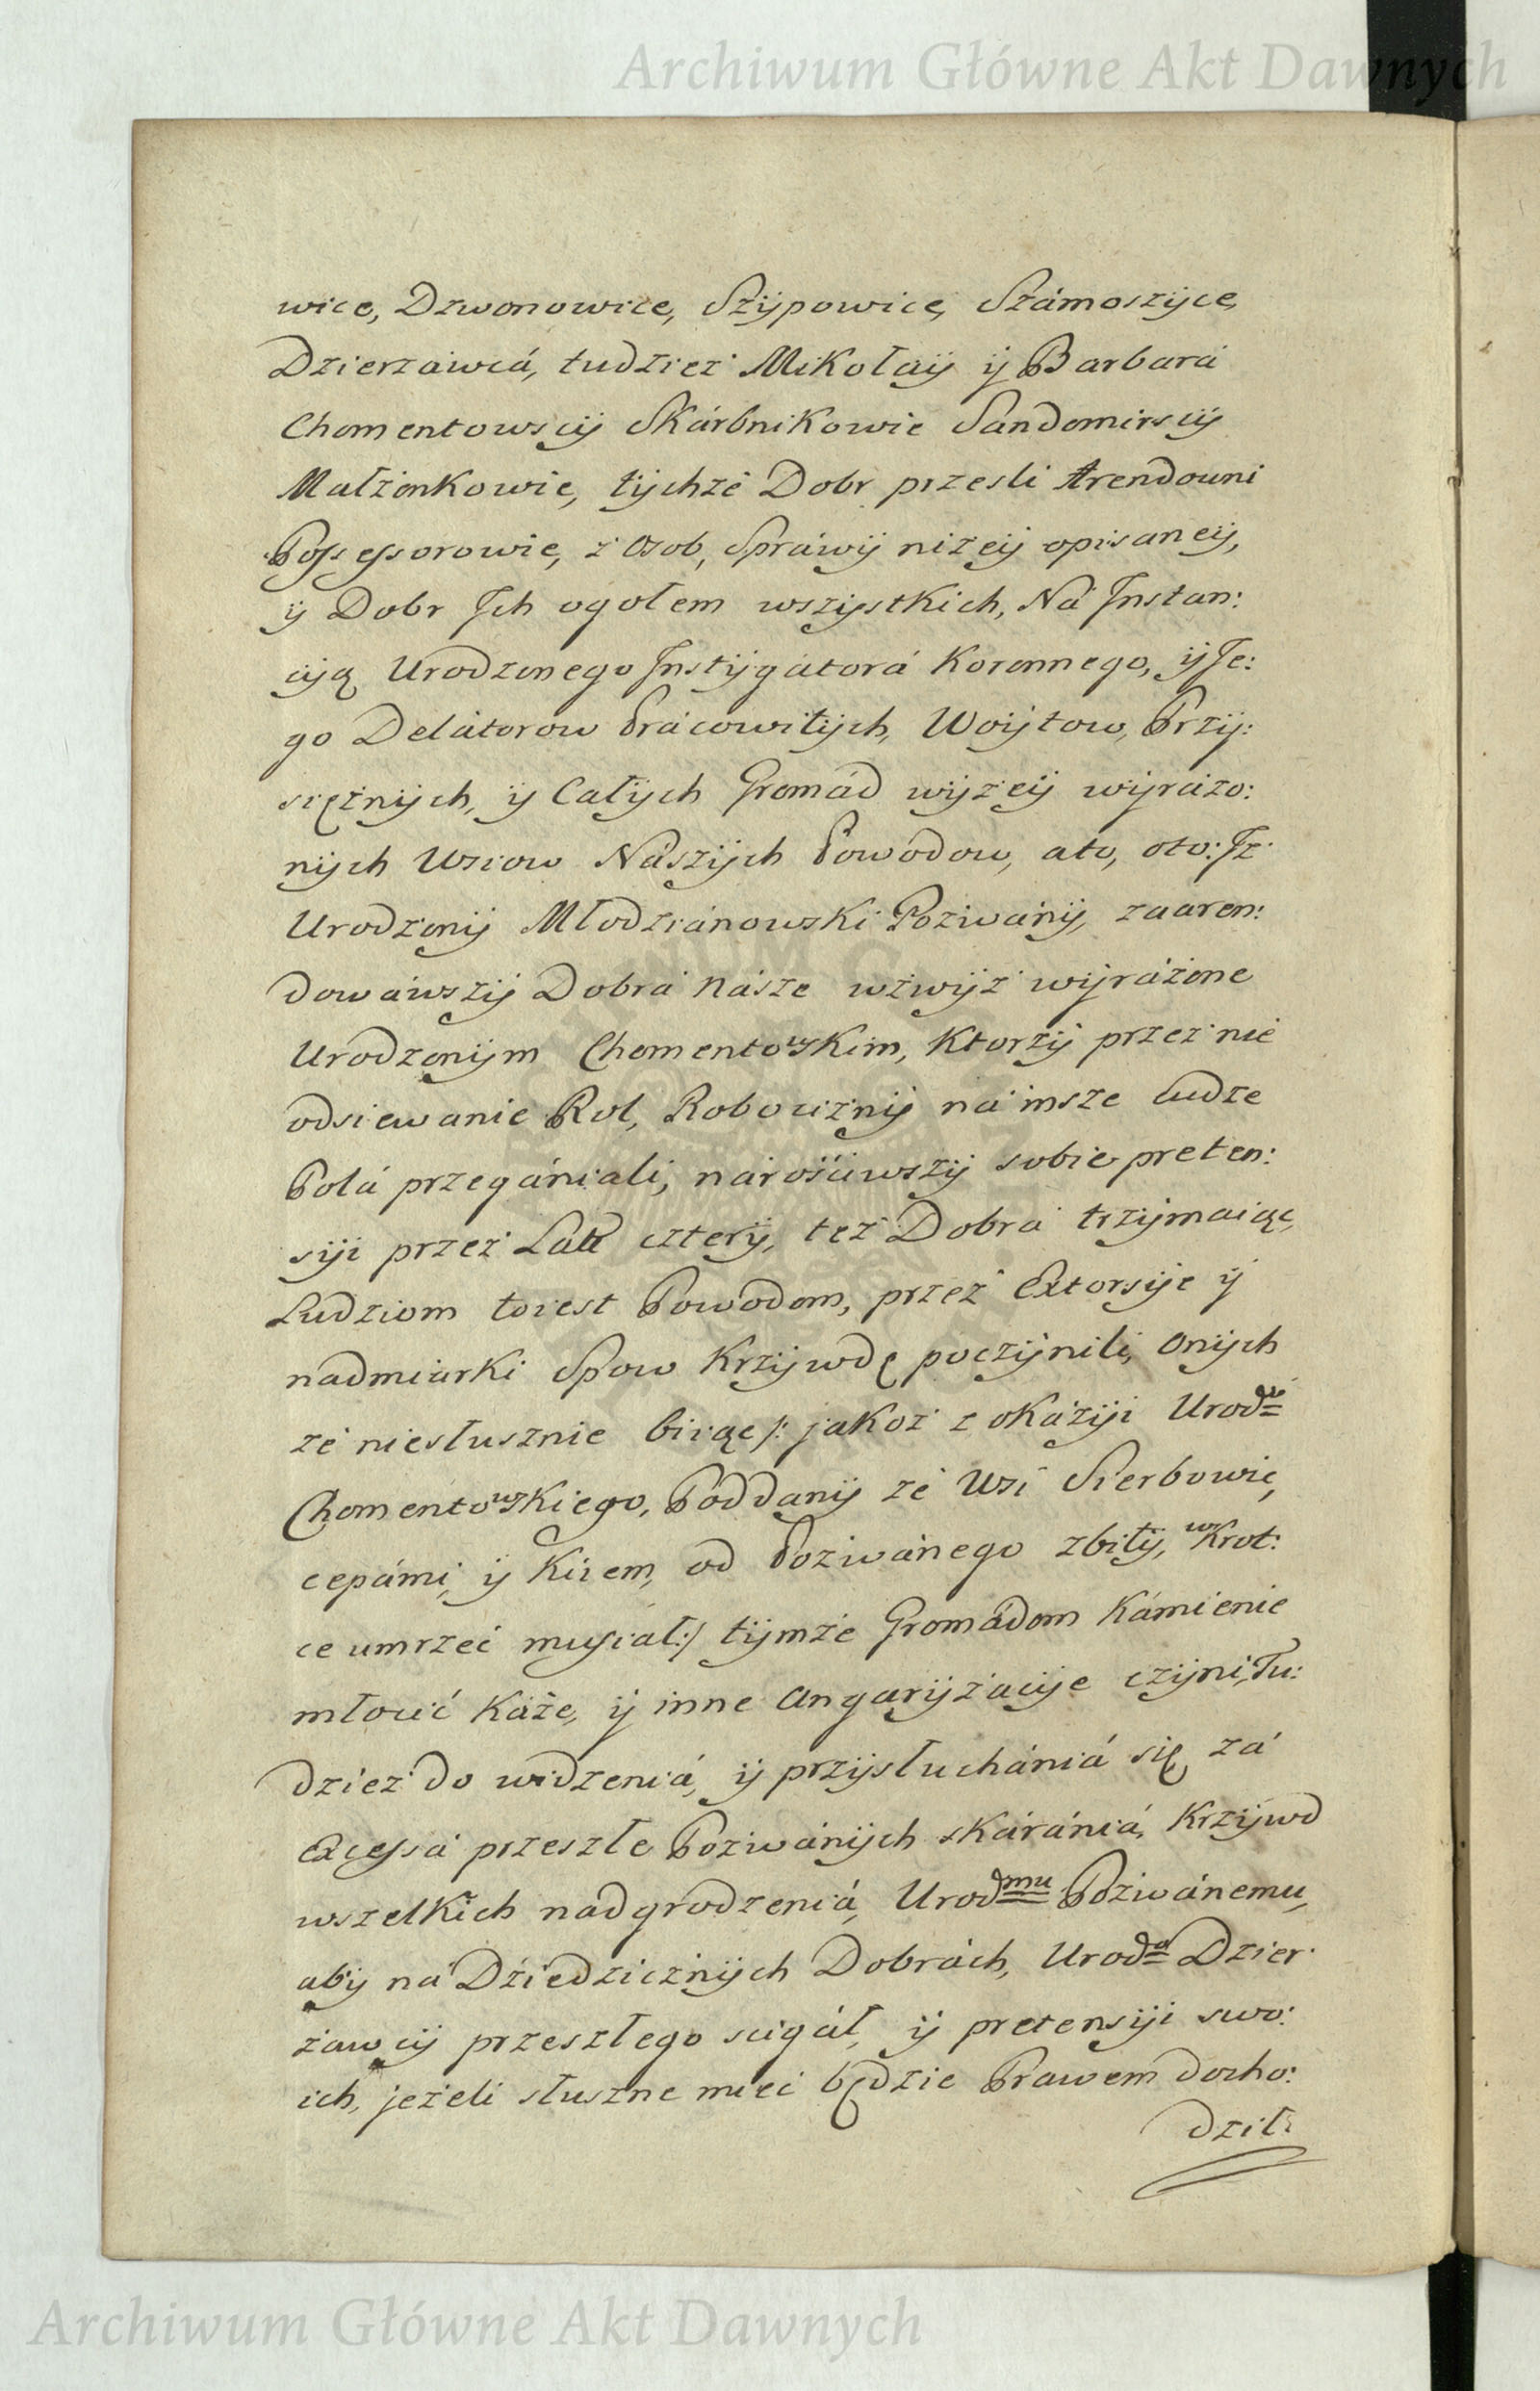 Archiwum Główne Akt Dawnych
wice, Dzwonowice, Szÿpowice, Számoszÿce,
Dzierzawcá, tudziez Mikołaÿ ÿ Barbara
Chomentowscÿ Skárbnikowie Sandomirscÿ
Małżonkowie, tÿchże Dobr przesli Arendowni
Possessorowie, z Osob, Spráwÿ niżeÿ opisaneÿ,
ÿ Dobr Jch ogołem wszÿstkich, Ná Jnstan:
cÿą Urodzonego Jnstÿgatorá Koronnego, ÿ Je:
go Delátorow Prácowitÿch, Woÿtow, Przÿ:
siężnÿch, ÿ Całÿch Gromád wÿżeÿ wÿrázo:
nÿch Wsiow Nászÿch Powodow, ato, oto: Jż
Urodzonÿ Młodziánowski Pozwánÿ, zaaren:
dowáwszÿ Dobrá násze wzwÿż wÿráżone
Urodzonÿm Chomentowskim, Ktorzÿ przez nie
odsiewanie Rol, Robociznÿ ná insze ludze
Polá przegániali, narościwszÿ sobie preten:
sÿi przez Lat czterÿ, też Dobrá trzÿmaiąc,
Ludziom toiest Powodom, przez Extorsÿie ÿ
nadmiarki Spow Krzÿwdę poczÿnili, Onÿch
że niesłusznie biiąc /: jakoż z okázÿi Urodgo
Chomentowskiego, Poddanÿ ze Wsi Sierbowic,
cepámi, ÿ Kiiem, od Pozwánego zbitÿ, wKrot:
ce umrzeć musiał:/ tÿmże Gromádom Kámienie
młocić Káże, ÿ inne Angarÿzacÿie czÿni, Tu:
dzież do widzeniá, ÿ przÿsłuchániá się zá
Excessá przeszłe Pozwánÿch skárániá, Krzÿwd
wszelkich nadgrodzeniá, Urodmu Pozwánemu,
abÿ ná Dziedzicznÿch Dobrách, Uroda Dzier:
żawcÿ przeszłego scigáł, ÿ pretensÿi swo:
ich, jeżeli słuszne mieć będzie Prawem docho:
dził:
Archiwum Główne Akt Dawnych